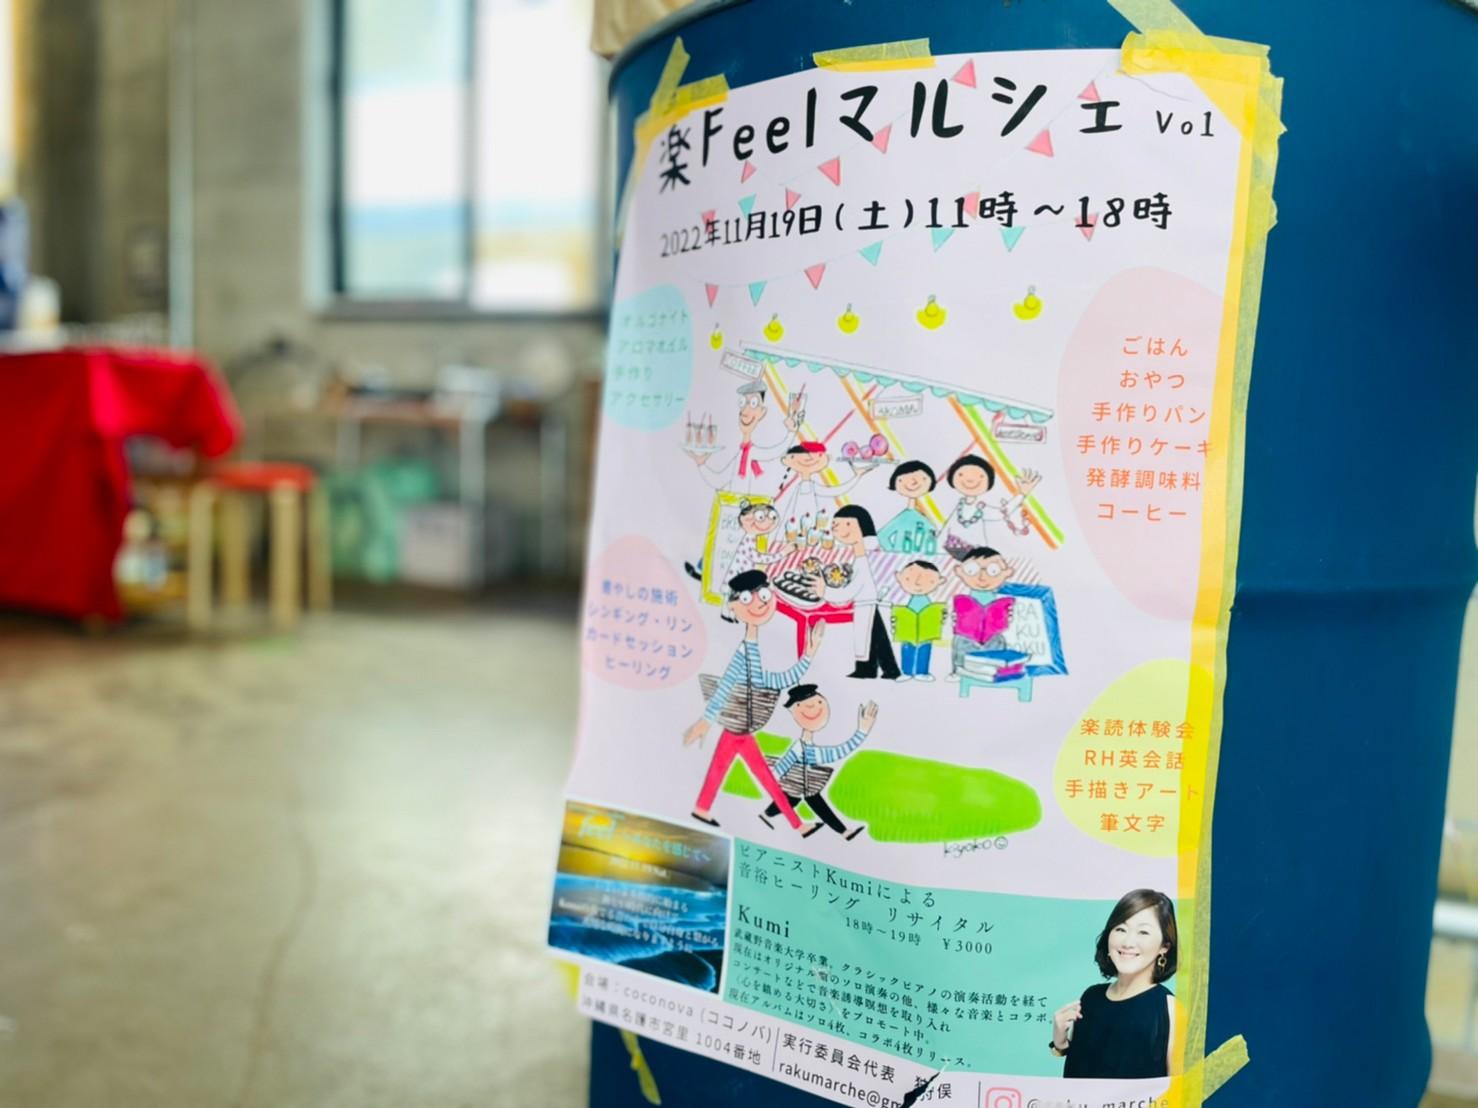 楽Feelマルシェ Vol1
2022年11月19日(土)11時～18時
オルゴナイト
アロマオイル
手作り
アクセサリー
ごはん
おやつ
手作りパン
手作りケーキ
発酵調味料
コーヒー
癒やしの施術
シンギング・リン
カードセッション
ヒーリング
楽読体験会
RH英会話
手描きアート
筆文字
RA
KU
DOKU
kiyoko
feel
～あなたを感じて～
ピアニストKumiによる
音浴ヒーリング リサイタル
18時～19時 ￥3000
Kumi
武蔵野音楽大学卒業。クラシックピアノの演奏活動を経て
現在はオリジナル曲のソロ演奏の他、様々な音楽とコラボ。
コンサートなどで音楽誘導瞑想を取り入れ
〈心を鎮める大切さ〉をプロモート中。
現在アルバムはソロ4枚、コラボ4枚リリース。
会場：coconova (ココノバ)
沖縄県名護市宮里 1004番地
実行委員会代表 狩俣
rakumarche@gm
@raku_marche